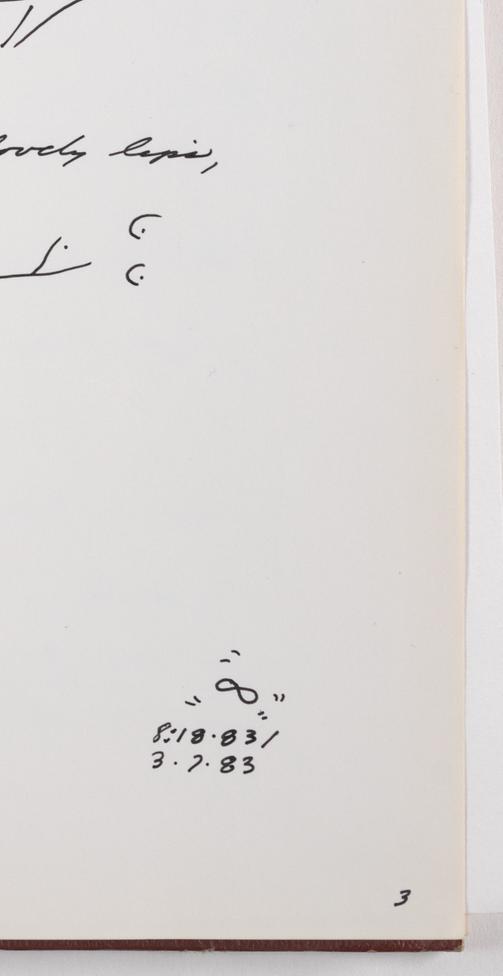 lovely lips,
∞
8:18.83/
3.7.83
3